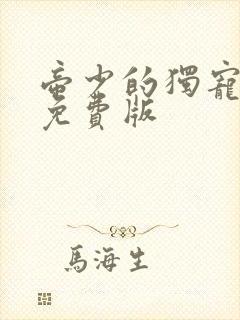 帝少的獨寵
免費版
馬海生